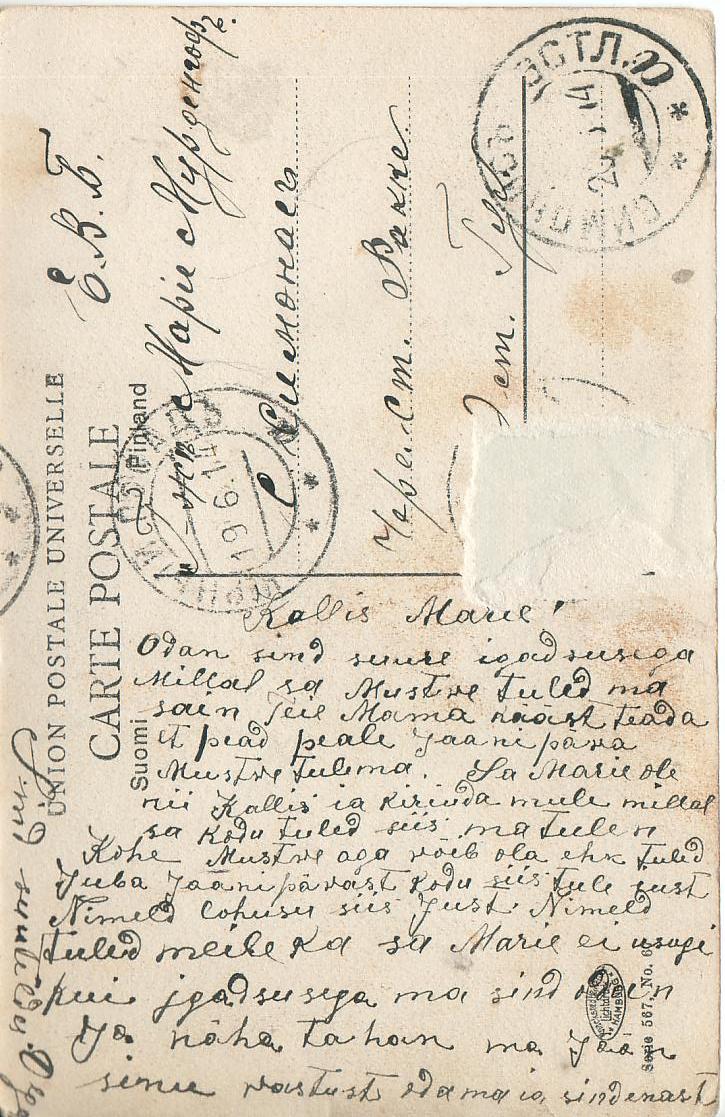 UNION POSTALE UNIVERSELLE
CARTE POSTALE
Suomi Finland
Е. В. Б.
Марiи Мурденгофъ.
Симонасъ
Чрез. Ст. Ракке.
Эст. Губ.
ЭСТЛ.
СИМОН
19 6 14
Kallis Marie!
Odan sind suure igadsusega
Millal sa Mustve tuled ma
sain Teie Mama kääst teada
et pead peale Jaanipäva
Mustve tulema. Sa Marie ole
nii Kallis ia kirinda mule millal
sa kodu tuled siis ma tulen
Kohe Mustve aga võib ola ehk tuled
Juba Jaanipävast kodu siis tule just
Nimeld siis Just Nimeld
tuled meile ka sa Marie ei usugi
kui jgadsusega ma sind
Ja näha tahan ma Jään
sinu vastust odama ia sindenast
Serie 567, No. 6